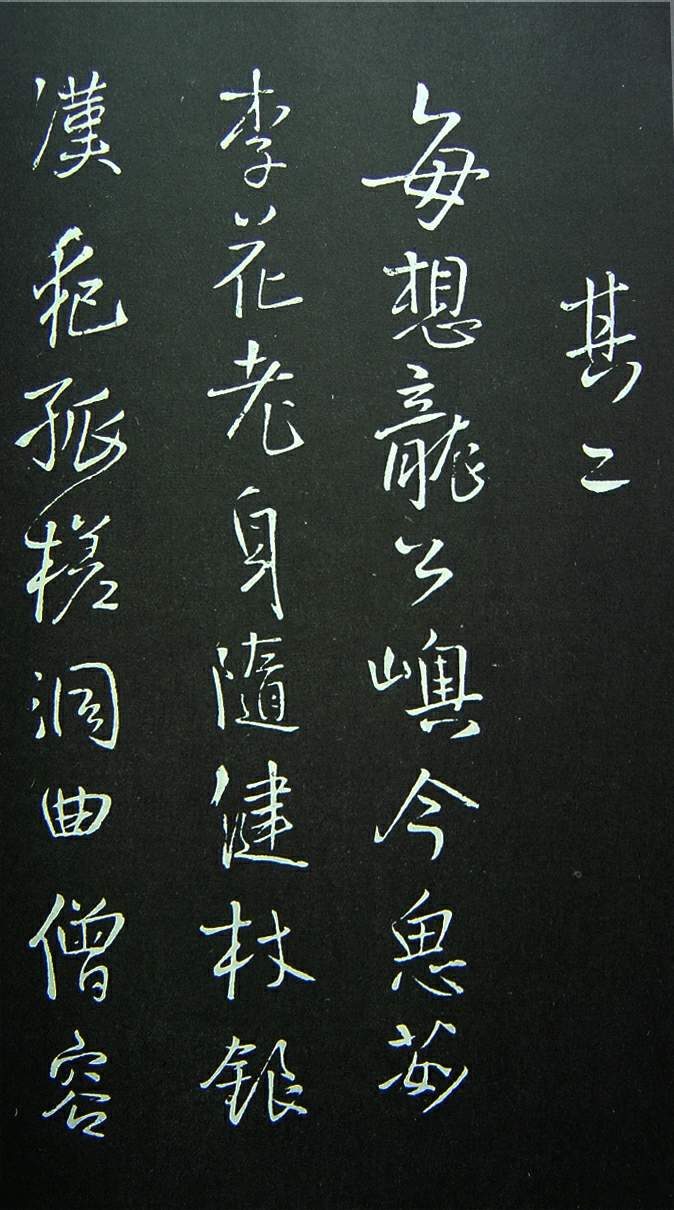 其二
每想龍公嶼今思茹
李花老身隨健杖銀
漢孤槎洞曲僧容